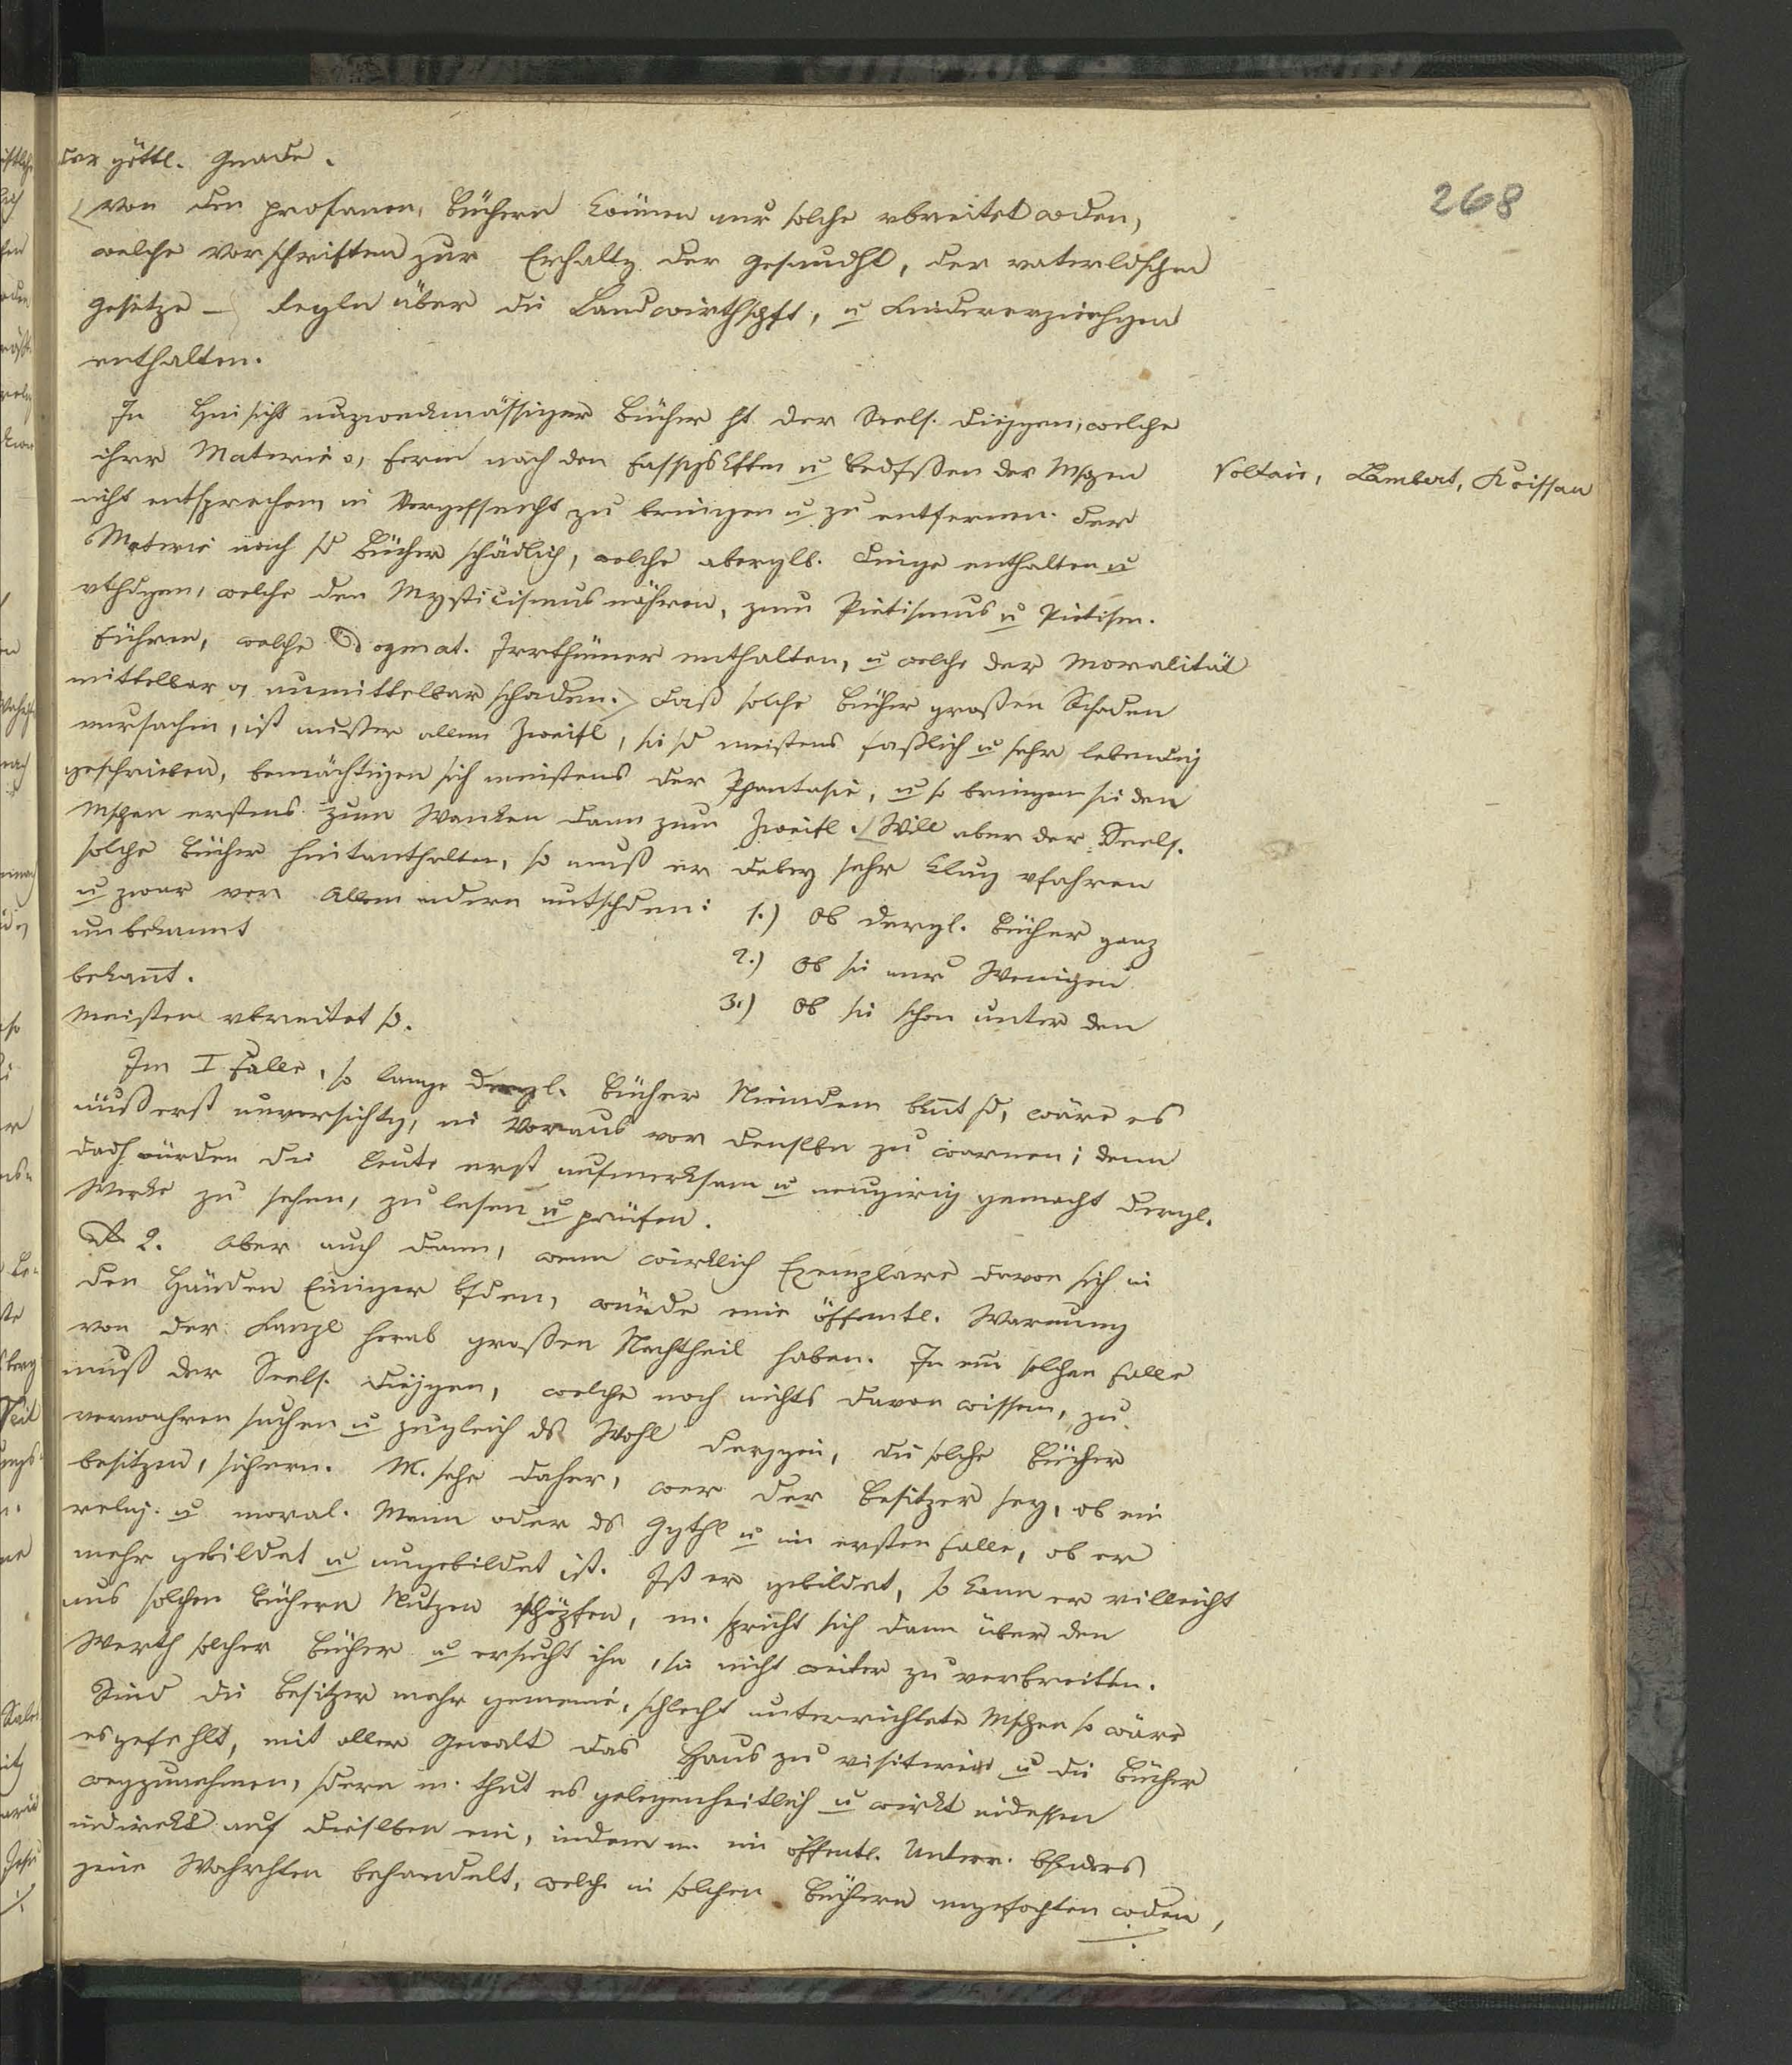 268
der göttl. Gnade.
Von den profanen Büchern können nur solche vbreitet wden,
welche Vorschriften zur Erhaltg der Gesundht, der vaterldschen
Gesetze – Regln über die Landwirthschft, u Kindererziehgen
enthalten.
In Hinsicht unzweckmässiger Bücher ht der Seels. diejgen, welche
ihrer Materie o, Form nach den Fassgs Kften u Bedfssen der Mschen
nicht entsprechen, in Vergessenht zu bringen u zu entfernen. Der
Voltair, Lambert, Roissau
Materie nach sd Bücher schädlich, welche abergl. Dinge enthalten u
vthdgen, welche den Mysticismus nähren, zum Pietismus u Pietism.
führen, welche Dogmat. Irrthümer enthalten, u welche der Moralität
mittelbar o, unmittelbar schaden. Daß solche Bücher großen Schaden
verursachen, ist außer allem Zweifl, sie sd meistens faßlich u sehr lebendig
geschrieben, bemächtigen sich meistens der Phantasie, u so bringen sie den
Mschen erstens zum Wanken dann zum Zweifl. Will aber der Seels.
solche Bücher hintanhalten, so muß er dabey sehr klug vfahren
u zwar vor Allem andern untschden: 1.) Ob dergl. Bücher ganz
unbekannt
2.) Ob sie nur Wenigen
bekannt.
3.) Ob sie schon unter den
Meisten vbreitet sd.
Im I Falle, so lange dergl. Bücher Niemdem bknt sd, wäre es
äußerst unvorsichtg, im Voraus vor denselben zu warnen; denn
dadch würden die Leute erst aufmerksam u neugirig gemacht dergl.
Werke zu sehen, zu lesen u prüfen.
2. Aber auch dann, wenn wirklich Exemplare davon sich in
den Händen Einiger bfden, würde eine öffentl. Warnung
von der Kanzl herab großen Nachtheil haben. In ein solchen Falle
muß der Seels. diejgen, welche noch nichts davon wissen, zu
verwahren suchen u zugleich ds Wohl derjgen, die solche Bücher
besitzen, sichern. M. sehe daher, wer der Besitzer sey, ob ein
relig. u moral. Mann oder ds Ggthl u im ersten Falle, ob er
mehr gebildet u ungebildet ist. Ist er gebildet, so kann er villeicht
aus solchen Büchern Nutzen schöpfen, m. spricht sich dann über den
Werth solcher Bücher u ersucht ihn, sie nicht weiter zu verbreiten.
Sind die Besitzer mehr gemeine, schlecht unterrichtete Mschen so wäre
es gefehlt, mit aller Gewalt das Haus zu visitiren u die Bücher
wegzunehmen, sdern m. thut es gelegenheitlich u wirkt indessen
indirekt auf dieselben ein, indem m. im öffentl. Unterr. bsnders
jene Wahrhten behandelt, welche in solchen Büchern angefochten wden,